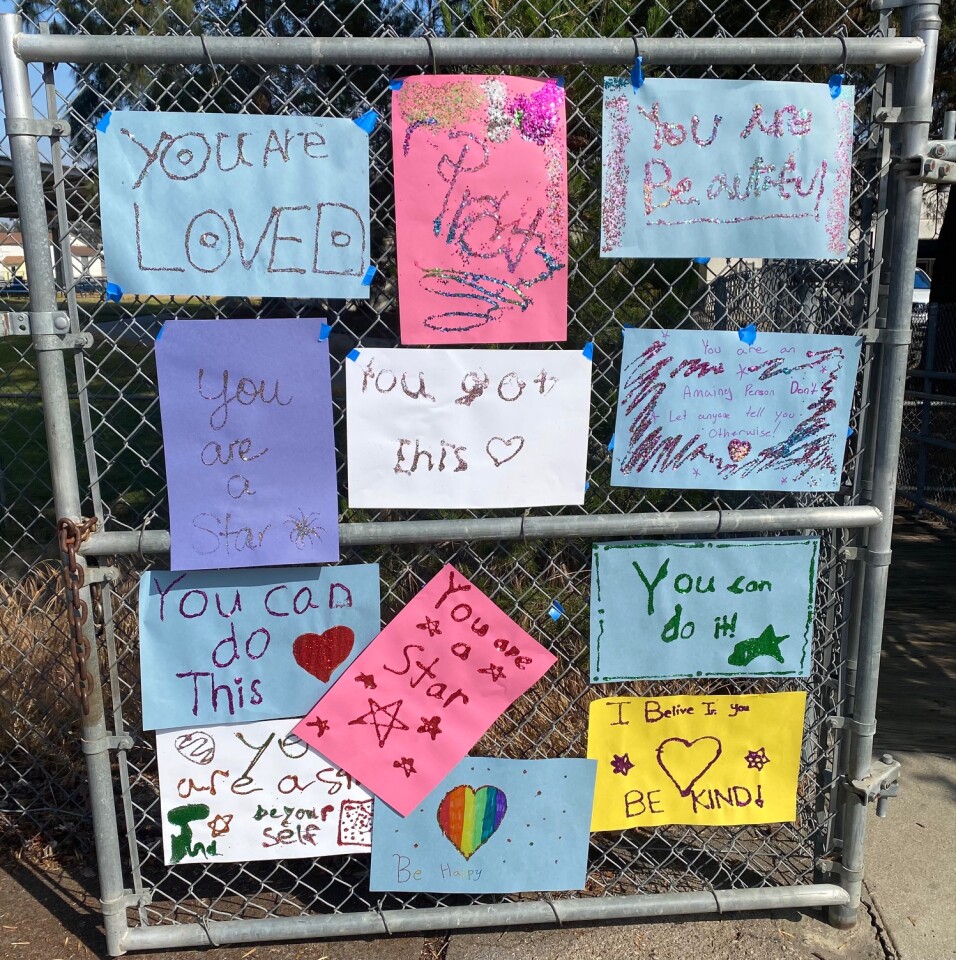 You ARE
LOVED
You are
Beautiful
You
are
a
Star
You got
this
You are an
Amaing Person Don't
Let anyone tell you
Otherwise!
You can
do
This
You are
a
Star
You can
do it!
are a
be your
self
Be Happy
I Belive In you
BE KIND!